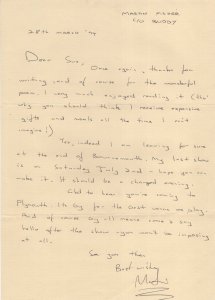 MARTIN FISHER
C/O BUDDY
28TH MARCH '94
Dear Sue,
Once again, thanks for
writing and of course for the wonderful
poem. I very much enjoyed reading it (tho'
why you should think I receive expensive
gifts and meals all the time I can't
imagine!)
Yes, indeed I am leaving for sure
at the end of Bournemouth. My last show
is on Saturday July 2nd - hope you can
make it. It should be a charged evening.
Glad to hear you're coming to
Plymouth. It's by far the best venue we play.
And of course by all means come & say
hello after the show - you won't be imposing
at all.
See you then
Best wishes
Martin